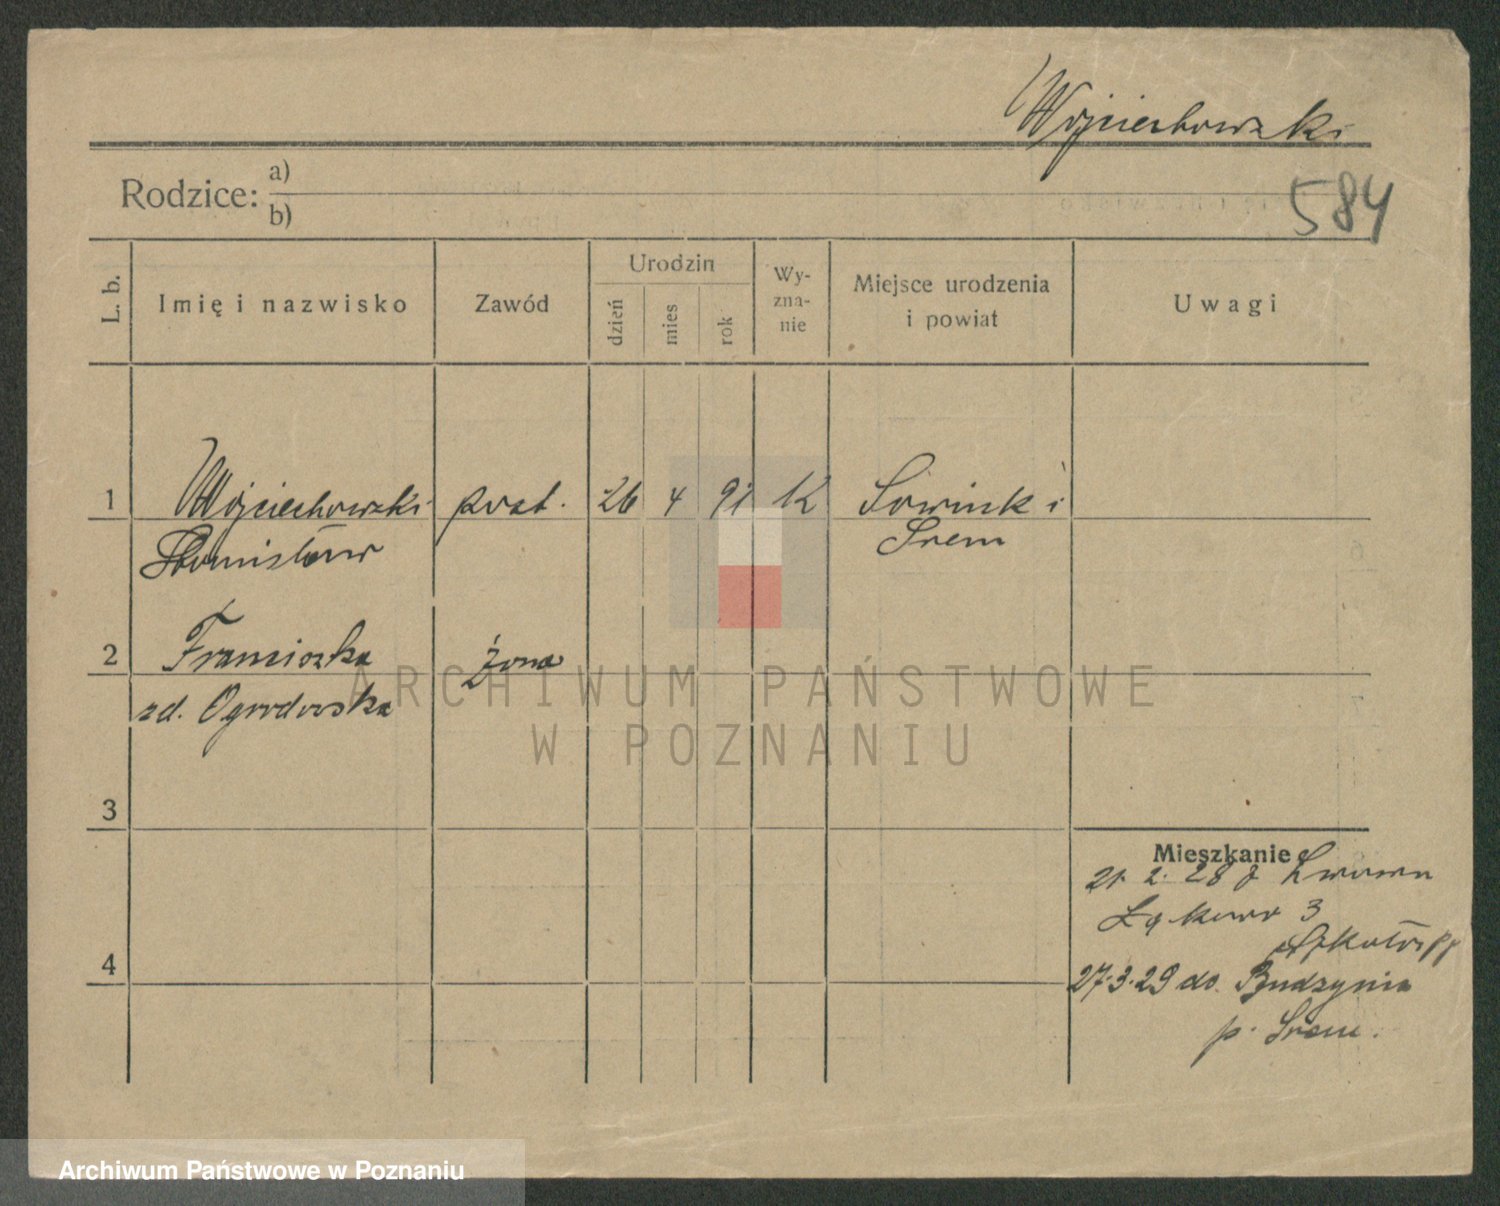 Wojciechowski
584
Rodzice: a)
b)
L. b. Imię i nazwisko Zawód Urodzin dzień mies rok Wy-zna-nie Miejsce urodzenia i powiat Uwagi
1 Wojciechowski post. 26 4 91 K Sowinki
Stanisław Srem
2 Franciszka żona
zd. Ogrodowska
3
Mieszkanie
21. 2. 28 z Lwowa
Łąkowa 3
4
27.3.29 do Budzynia
p. Srem.
ARCHIWUM PAŃSTWOWE
W POZNANIU
Archiwum Państwowe w Poznaniu